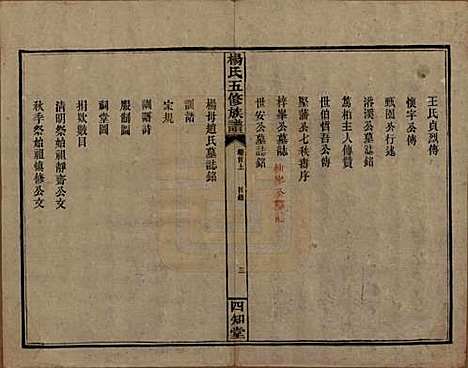 王氏貞烈傳
懷宇公傳
戰園公行述
浴溪公墓誌銘
篤柏主人傳贊
世伯愼吾公傳
堅蕭公七秩壽序
梓峯公墓誌
仙峯公墓誌
世安公墓誌銘
楊氏五修族譜
卷首上
目錄
三
四知堂
楊母趙氏墓誌銘
訓誥
宗規
訓語詩
服制圖
祠堂圖
捐欵數目
清明祭始祖靜齋公文
秋季祭始祖愼修公文